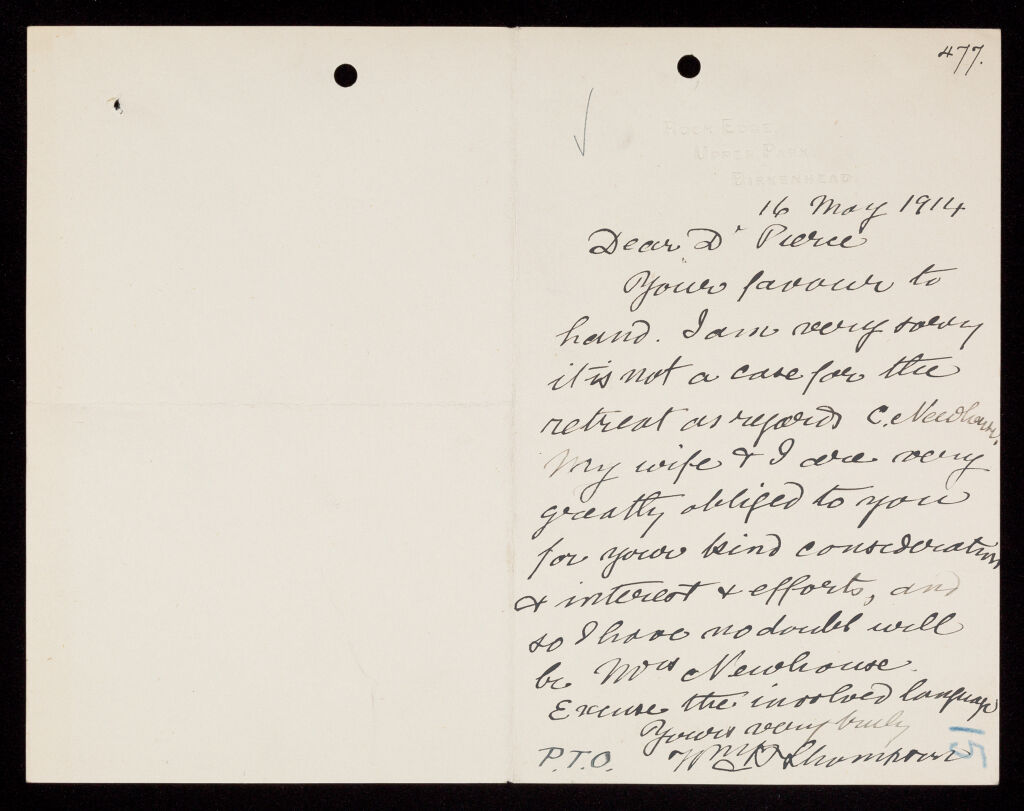 477.
ROCK EDGE,
UPPER PARK,
BIRKENHEAD.
16 May 1914
Dear Dr Pierce
Your favour to
hand. I am very sorry
it is not a case for the
retreat as regards C. Newhouse.
My wife & I are very
greatly obliged to you
for your kind consideration
& interest & efforts, and
so I have no doubt will
be Mrs Newhouse.
Excuse the involved language
Yours very truly
Thompson
P.T.O.
15